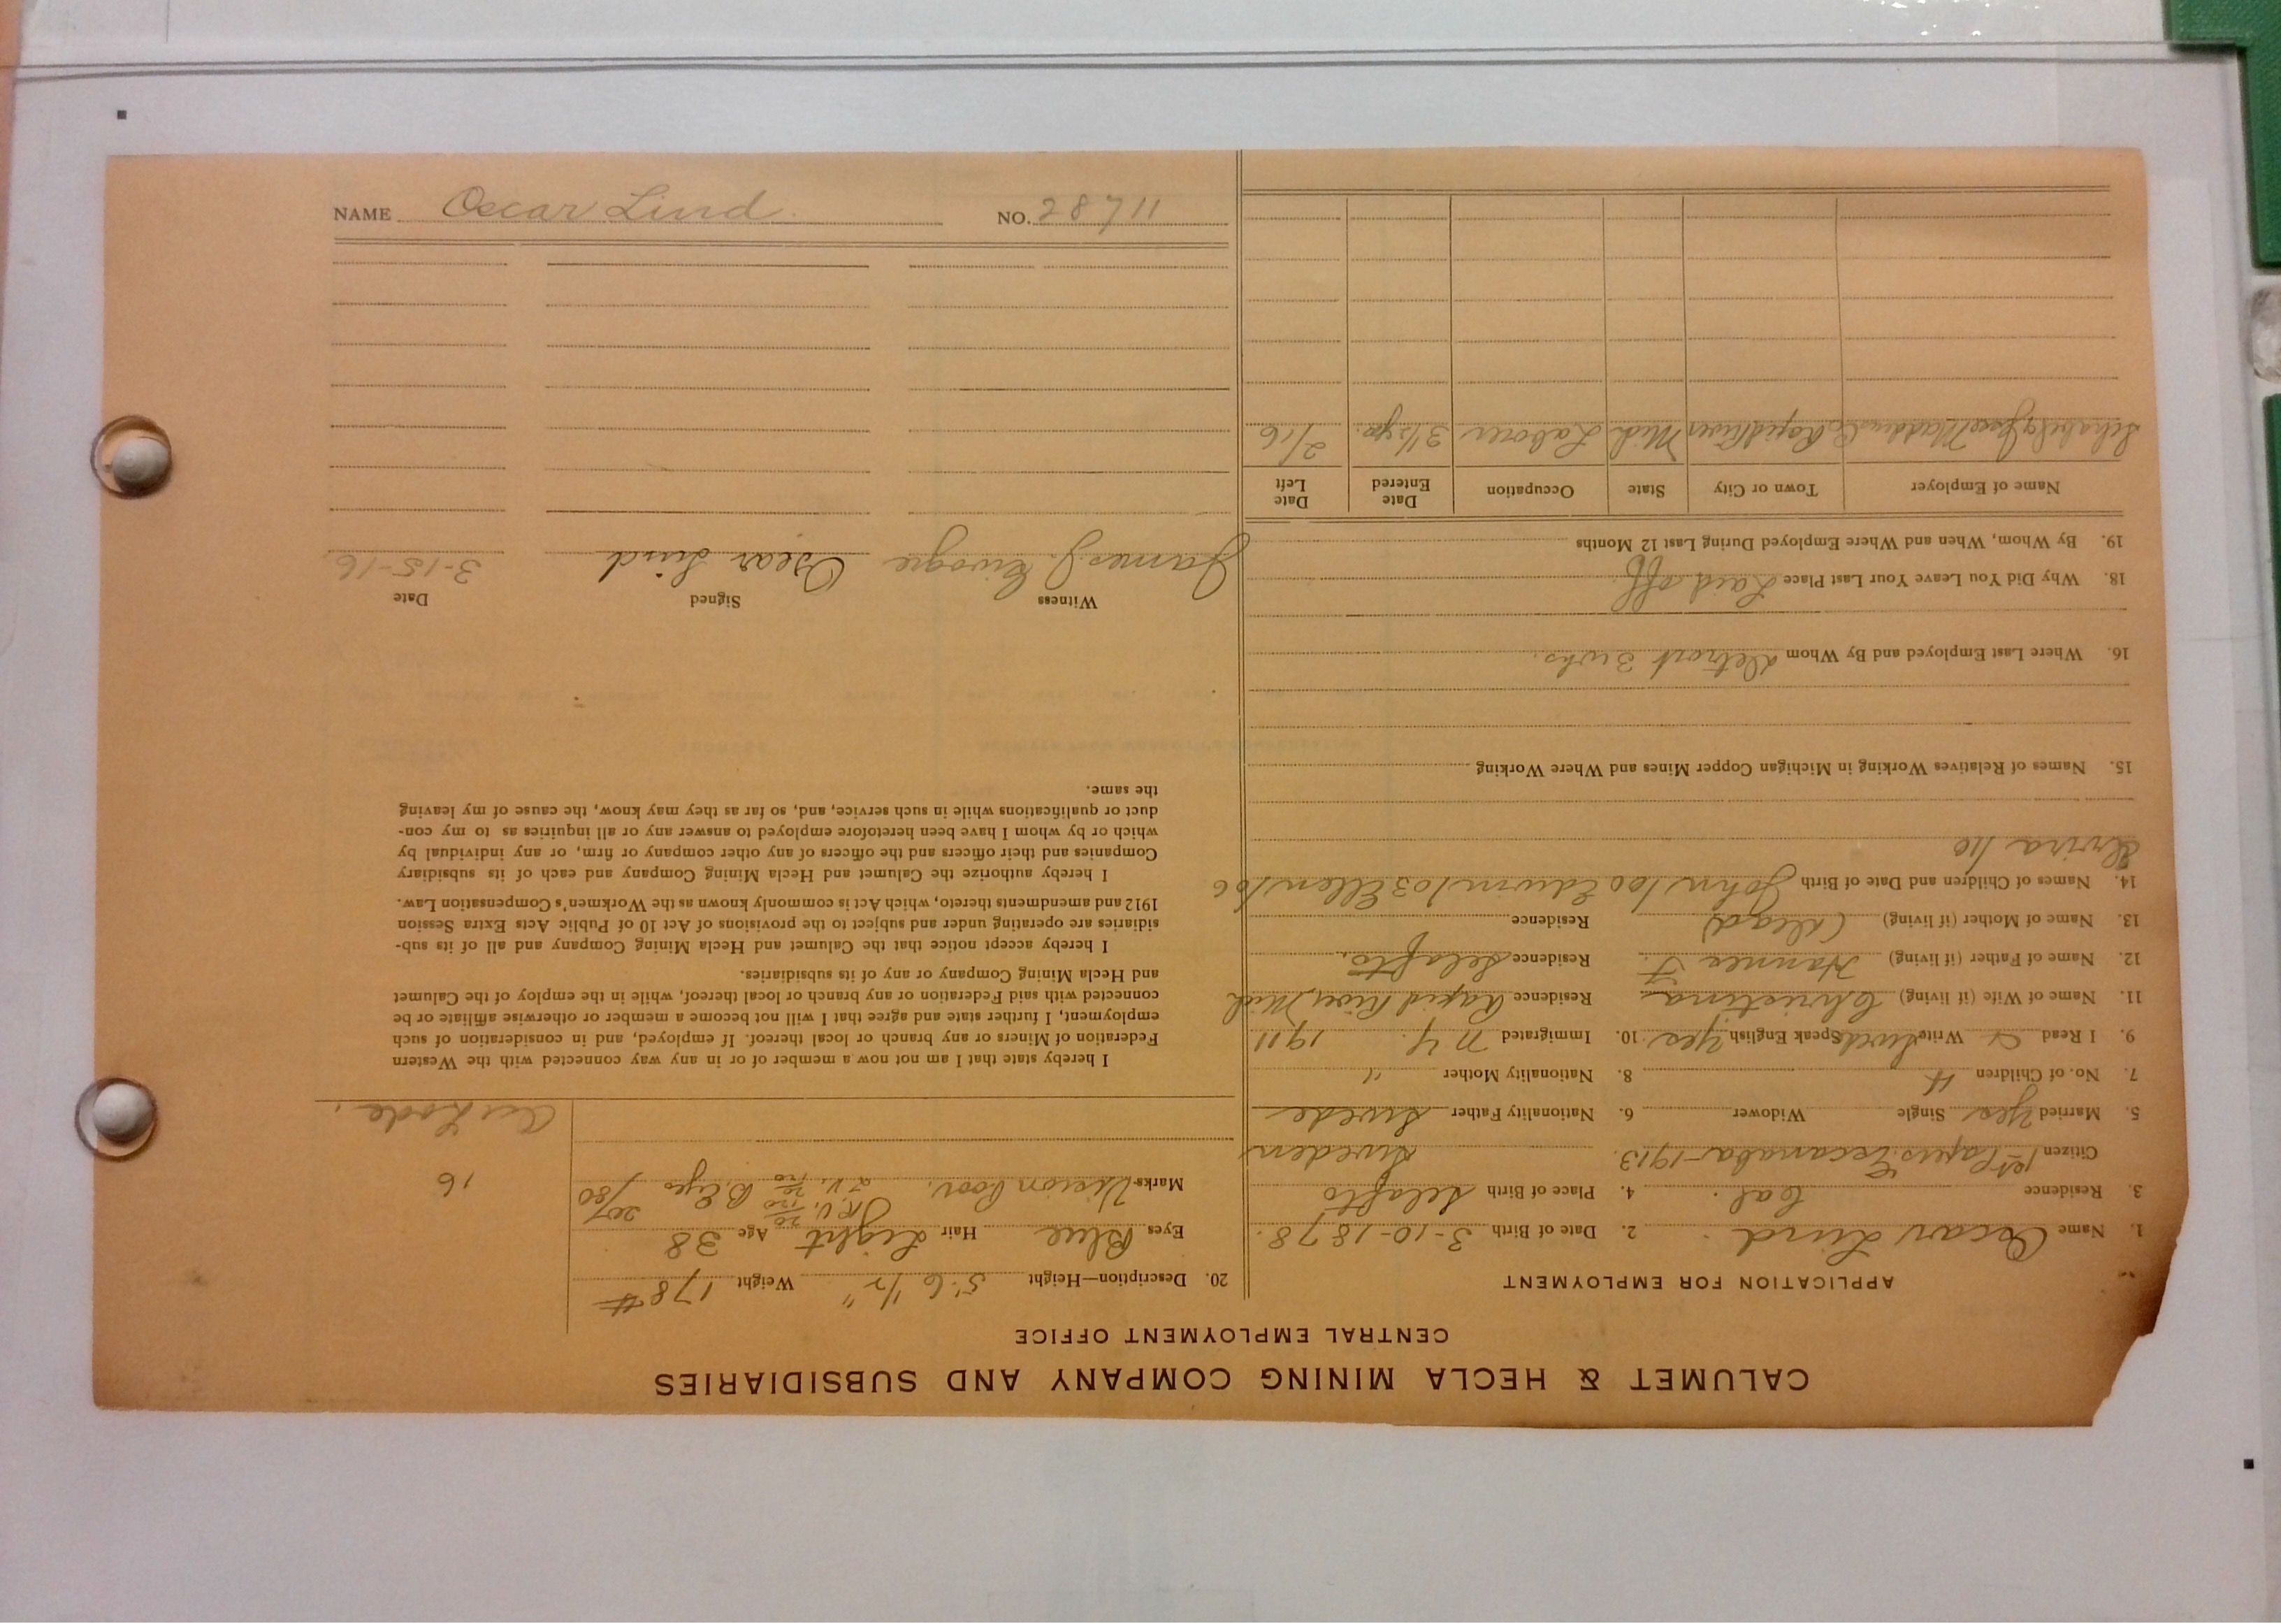 NAME Oscar Lind. NO. 28711
CALUMET & HECLA MINING COMPANY AND SUBSIDIARIES
CENTRAL EMPLOYMENT OFFICE
APPLICATION FOR EMPLOYMENT
1. Name Oscar Lind. 2. Date of Birth 3-10-1878.
3. Residence Cal. 4. Place of Birth
Citizen 1st Papers. Escanaba-1913. Sweden
5. Married Yes Single Widower 6. Nationality Father Swede
7. No. of Children 4 8. Nationality Mother "
9. I Read & Write Swede Speak English Yes 10. Immigrated N.Y. 1911
11. Name of Wife (if living) Christina Residence Rapid River, Mich
12. Name of Father (if living) Hannes F. Residence
13. Name of Mother (if living) (Dead) Residence
14. Names of Children and Date of Birth John/00 Edwin/03 Ellen/06
/10
15. Names of Relatives Working in Michigan Copper Mines and Where Working
16. Where Last Employed and By Whom Detroit 3 wks.
18. Why Did You Leave Your Last Place Laid off.
19. By Whom, When and Where Employed During Last 12 Months
Name of Employer Town or City State Occupation Date Entered Date Left
Rapid River Mich Laborer 3 1/2 yrs. 2/16
20. Description—Height 5' 6 1/2" Weight 178 #
Eyes Blue Hair Light Age 38
Marks Vision Poor. R.V. 20/120 L.V. 20/120 B. Eyes 20/80
16
I hereby state that I am not now a member of or in any way connected with the Western
Federation of Miners or any branch or local thereof. If employed, and in consideration of such
employment, I further state and agree that I will not become a member or otherwise affiliate or be
connected with said Federation or any branch or local thereof, while in the employ of the Calumet
and Hecla Mining Company or any of its subsidiaries.
I hereby accept notice that the Calumet and Hecla Mining Company and all of its sub-
sidiaries are operating under and subject to the provisions of Act 10 of Public Acts Extra Session
1912 and amendments thereto, which Act is commonly known as the Workmen's Compensation Law.
I hereby authorize the Calumet and Hecla Mining Company and each of its subsidiary
Companies and their officers and the officers of any other company or firm, or any individual by
which or by whom I have been heretofore employed to answer any or all inquiries as to my con-
duct or qualifications while in such service, and, so far as they may know, the cause of my leaving
the same.
Witness Signed Date
James J. Oscar Lind 3-15-16